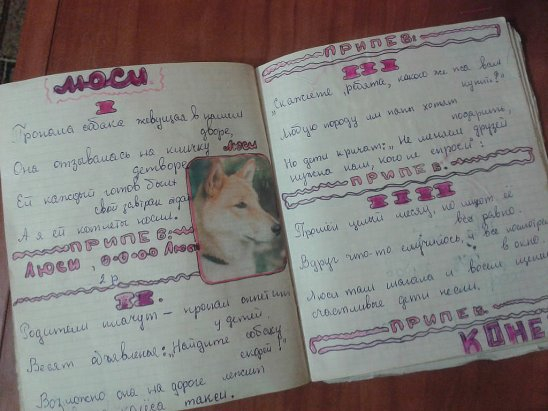 ЛЮСИ
I
Пропала собака живущая в нашем
дворе,
Она отзывалась на кличку Люси
детворе
Ей каждый готов был
свой завтрак отдать
А я ей котлеты носил.
ПРИПЕВ:
Люси, о-о-о-о Люси
2 р.
II.
Родители плачут – пропал аппетит
у детей.
Весят объявленья: „Найдите собаку
скорей!"
Возможно она на дороге лежит
такси.
ПРИПЕВ:
III
„Скажите, ребята, какого же пса вам
купить?"
Любую породу им папы хотят
подарить,
Но дети кричат: „Не меняют друзей
нужна нам, кого не спроси!
ПРИПЕВ:
IIII
Прошёл целый месяц, но ищут её
все равно.
Вдруг что-то случилось, и все посмотрели
в окно.
Люси там шагала и восемь щенят
счастливые дети несли.
ПРИПЕВ.
КОНЕ